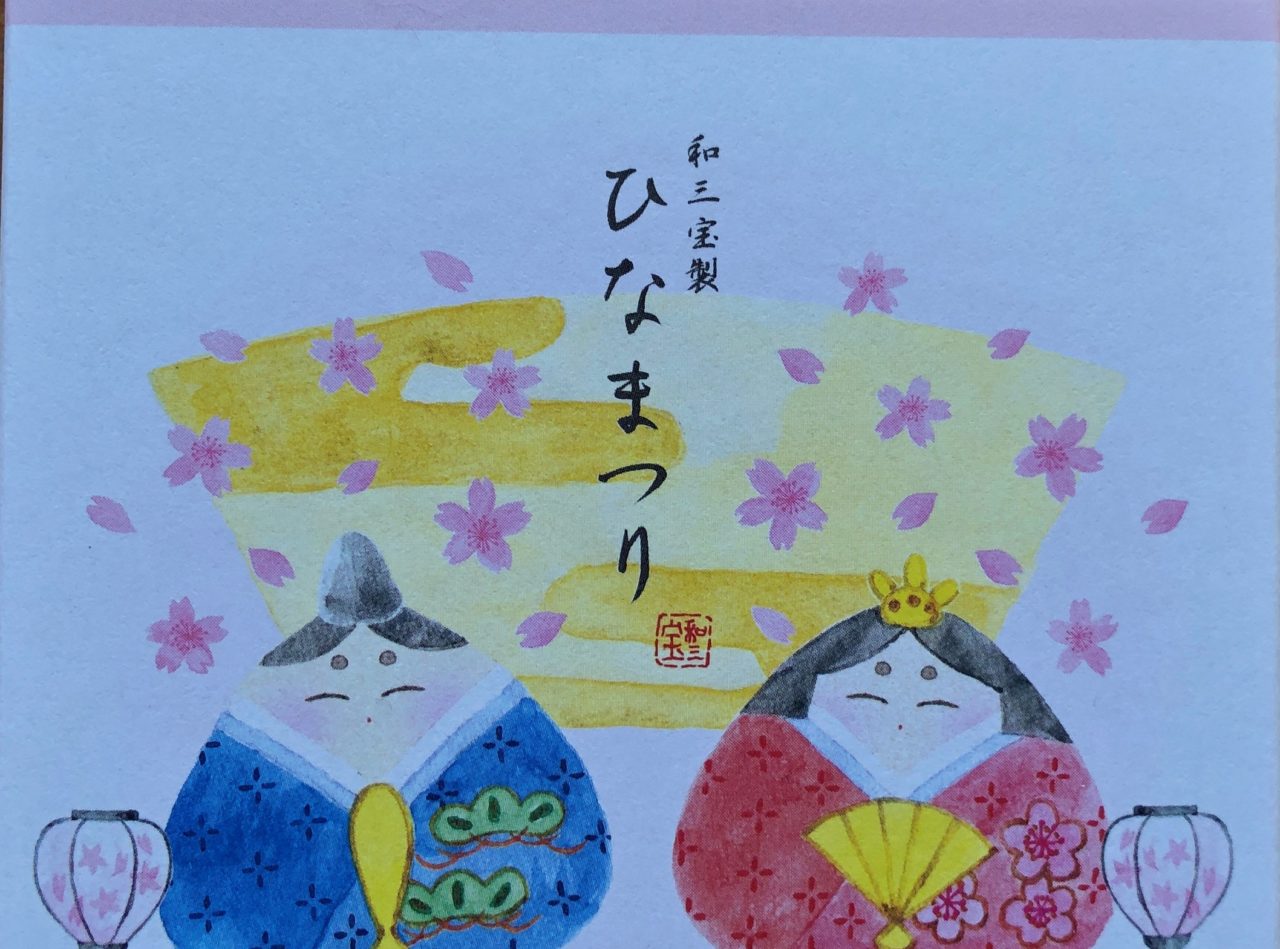 和三宝製
ひなまつり
和三宝